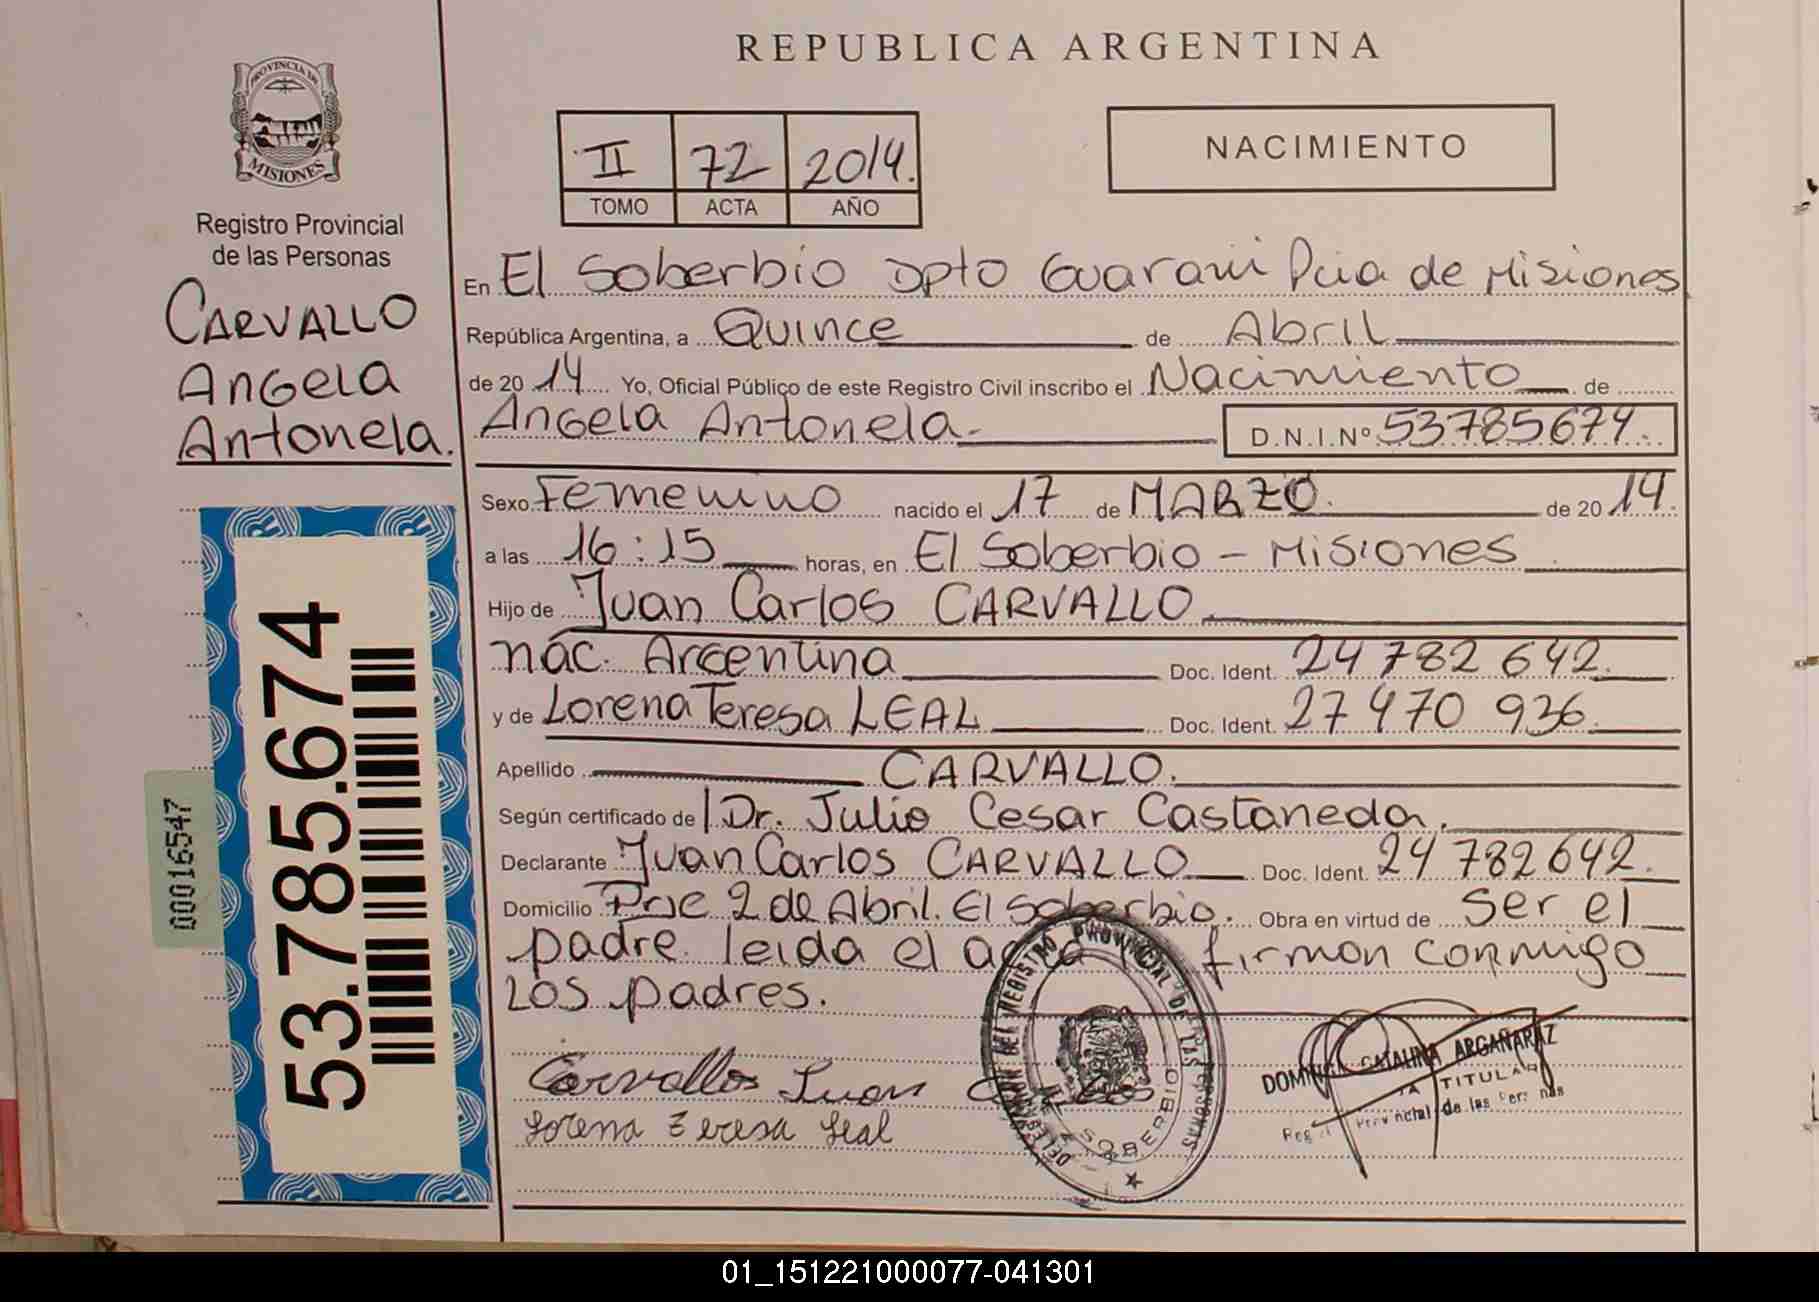 REPUBLICA ARGENTINA
PROVINCIA DE
MISIONES
Registro Provincial
de las Personas
CARVALLO
Angela
Antonela.
II 72 2014.
TOMO ACTA AÑO
NACIMIENTO
En El Soberbio Dpto Guarani Pcia de Misiones
República Argentina, a Quince de Abril
de 2014 Yo, Oficial Público de este Registro Civil inscribo el Nacimiento de
Angela Antonela. D.N.I.Nº 53785674.
Sexo Femenino nacido el 17 de MARZO. de 2014.
a las 16:15 horas, en El Soberbio - Misiones
Hijo de Juan Carlos CARVALLO
nac. Argentina Doc. Ident. 24 782 642.
y de Lorena Teresa LEAL Doc. Ident. 27 470 936.
Apellido CARVALLO.
Según certificado de Dr. Julio Cesar Castaneda.
Declarante Juan Carlos CARVALLO Doc. Ident. 24 782 642.
Domicilio 2 de Abril. El Soberbio. Obra en virtud de Ser el
padre. leida el firman conmigo
Los padres.
Carvallos Juan
Lorena Teresa Leal
REGISTRO PROVINCIAL DE LAS PERSONAS
SOBERBIO
CATALINA ARGAÑARAZ
TITULAR
de las
53.785.674
00016547
01_151221000077-041301